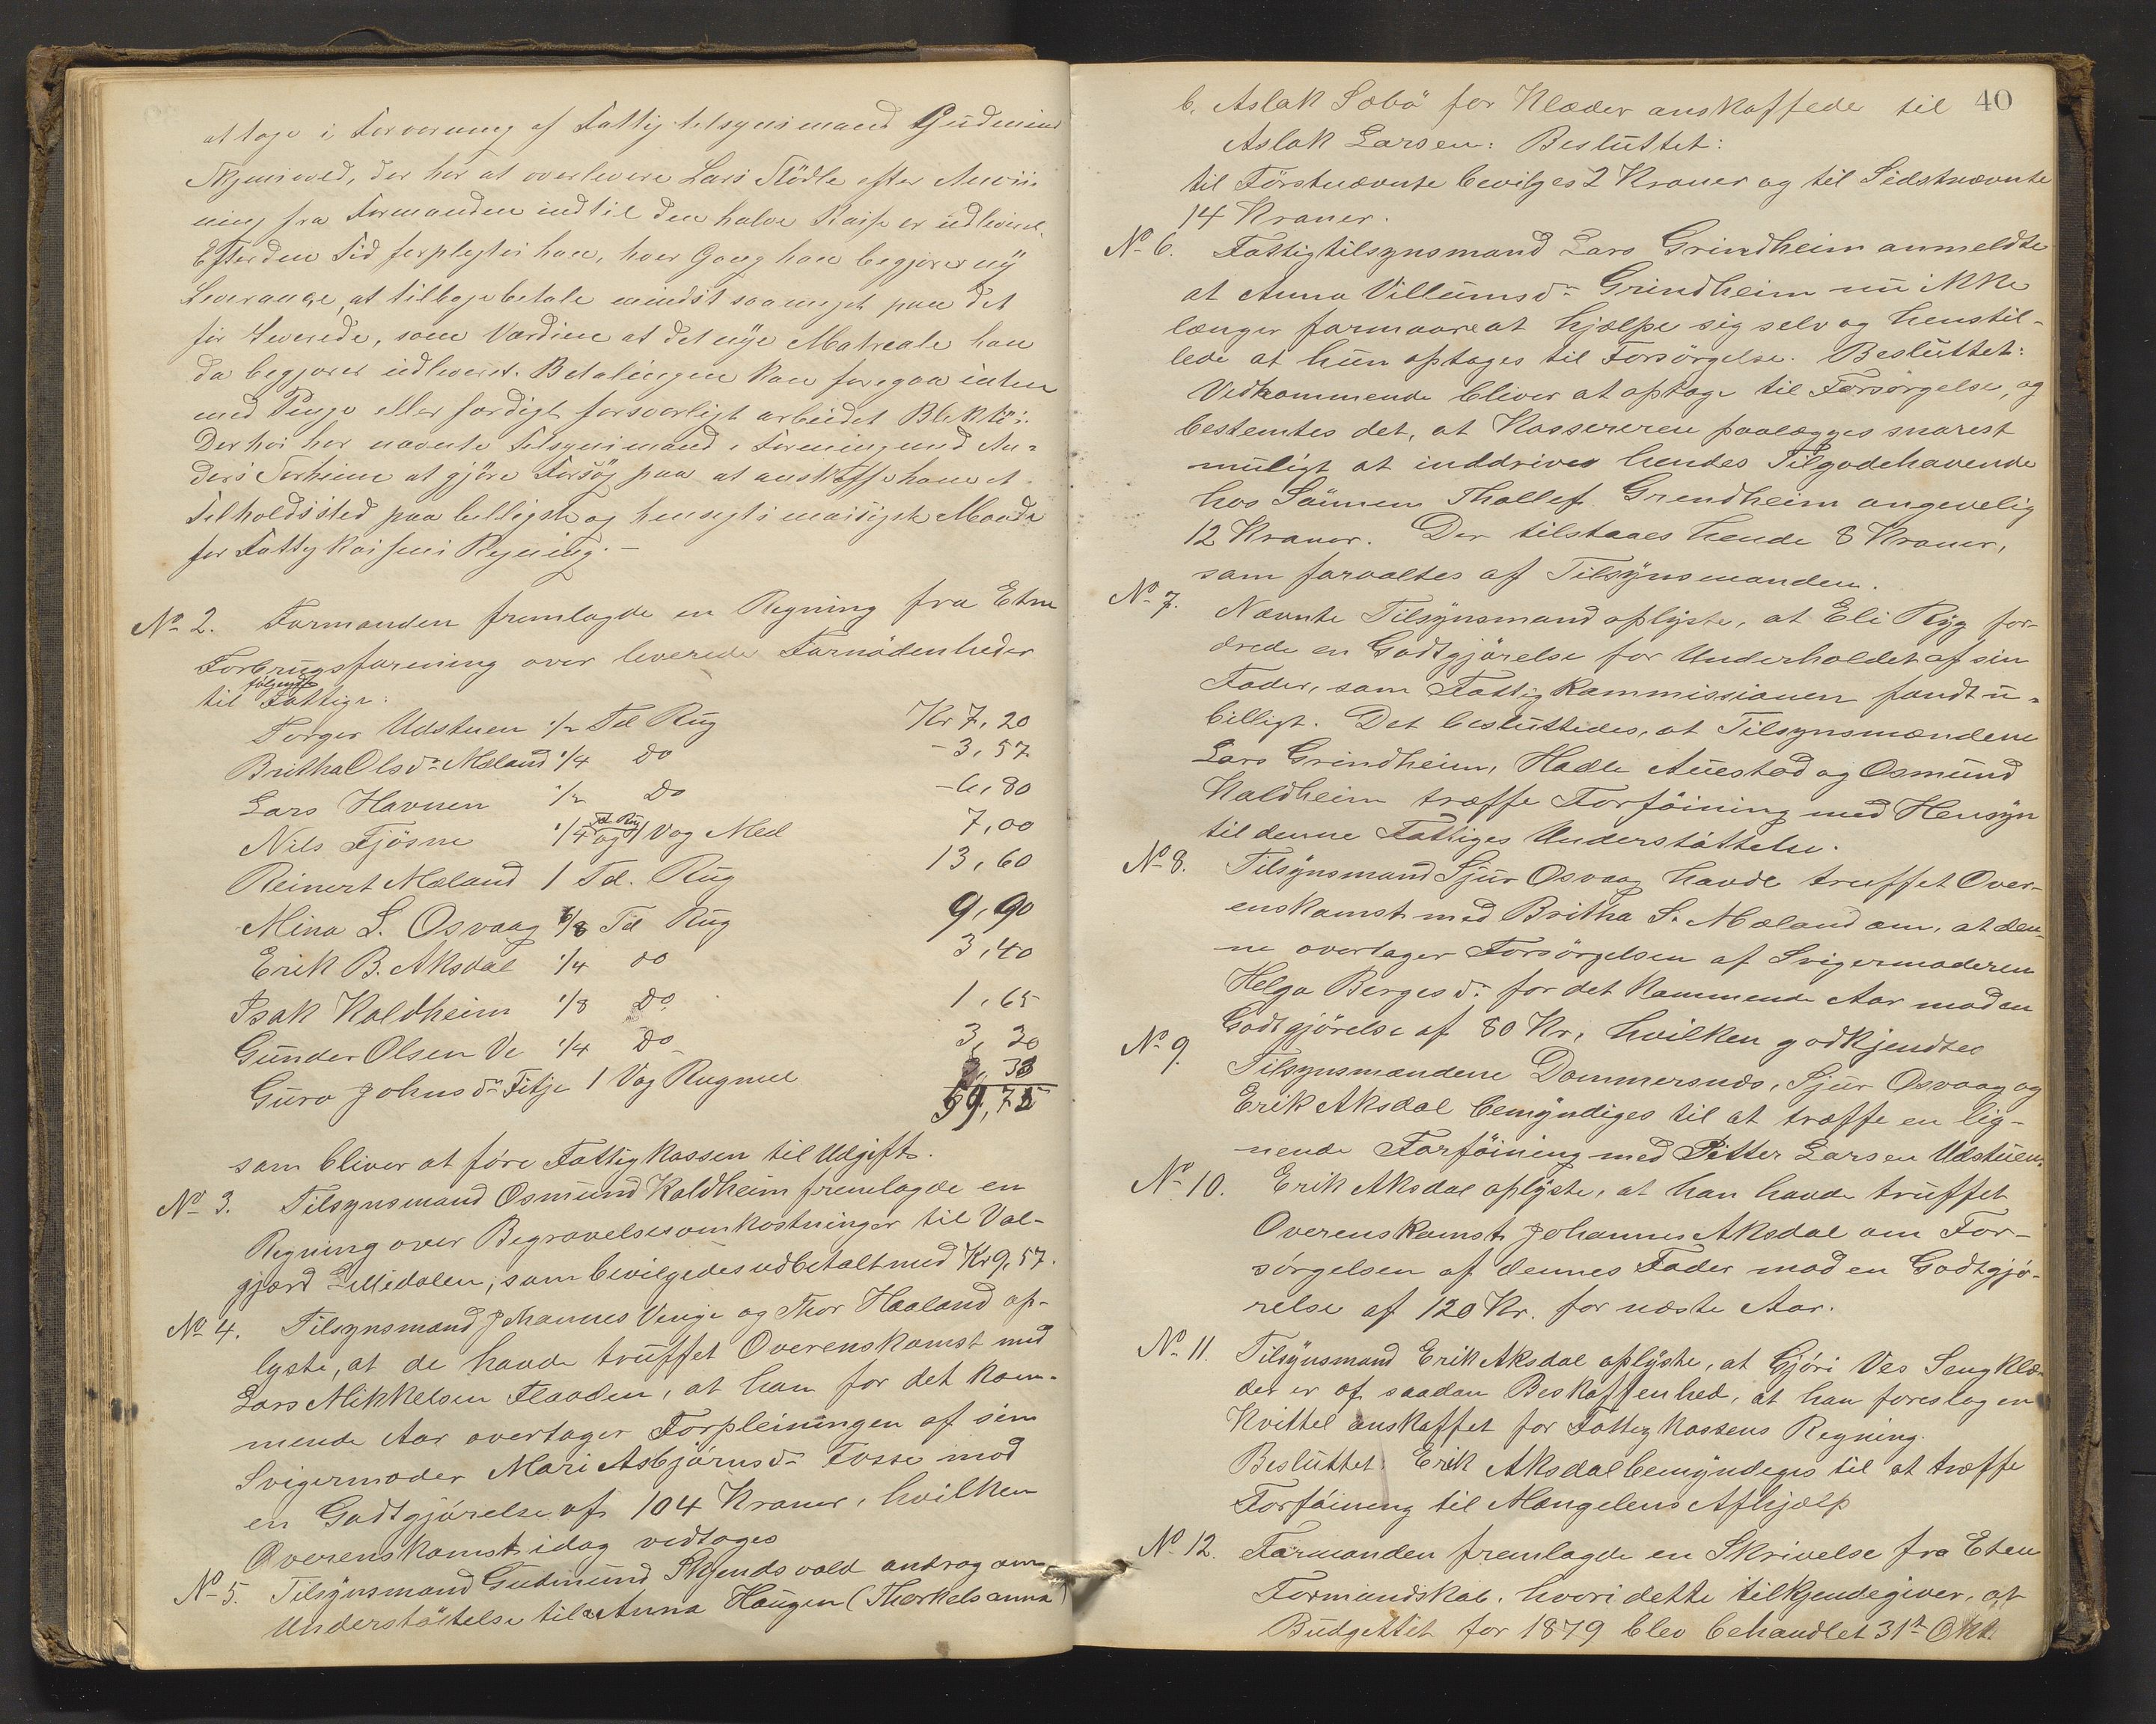 at tage i Forvaring af Fattigtilsynsmand Gudmund
Skjensvold, der har at overlevere Lars Flödle efter Anvis
ning fra Formanden indtil den halve Kaise er udleveret.
Efter den Tid forpligtes han, hver Gang han begjærer ny
Leverange, at tilbagebetale mindst saameget paa det
för leverede, som Værdien at det nye Matreale han
da begjærer udleveret. Betalingen kan foregaa enten
med Penge eller færdigt forsvarligt arbeidet Bliktöi.
Derhos har nævnte Tilsynsmand i Forening med An-
ders Torheim at gjöre Forsög paa at anskaffe ham et
Tilholdssted paa billigste og hensigtsmæsigste Maade
for Fattigkassens Regning. –
No 2. Formanden fremlagde en Regning fra Etne
Forbrugsforening over leverede Fornödenheder
til følgende Fattige:
Torger Udstuen 1/2 Td Rug Kr 7,20
Britha Olsdr Mæland 1/4 do - 3,57
Lars Havnen 1/2 do - 6,80
Nils Fjösne 1/4 Td Rug og 1 Vog Mel 7,00
Reinert Mæland 1 Td. Rug 13,60
Mina S. Osvaag 6/8 Td Rug 9,90
Erik B. Aksdal 1/4 do 3,40
Isak Kaldheim 1/8 do 1,65
Gunder Olsen Ve 1/4 do 3,30
Guro Johnsdr Fitje 1 Vog Rugmel 3,33
59,75
som bliver at före Fattigkassen til Udgift.
No 3. Tilsynsmand Osmund Kaldheim fremlagde en
Regning over Begravelsesomkostninger til Val-
gjærd Lillidalen, som bevilgedes udbetalt med Kr 9,57.
No 4. Tilsynsmand Johannes Vinge og Thor Haaland op-
lyste, at de havde truffet Overenskomst med
Lars Mikkelsen Flaaden, at han for det kom-
mende Aar overtager Forpleiningen af sin
Svigermoder Mari Asbjörnsdr Fosse mod
en Godtgjörelse af 104 Kroner, hvilken
Overenskomst idag vedtoges
No 5. Tilsynsmand Gudmund Skjendsvold androg om
Understöttelse til a Anna Haugen (Thorkelsanna)
40
b. Aslak Sæbö for Klæder anskaffede til
Aslak Larsen: Besluttet:
til Förstnævnte bevilges 2 Kroner og til Sidstnævnte
14 Kroner.
No 6. Fattigtilsynsmand Lars Grindheim anmeldte
at Anna Villumsdr Grindheim nu ikke
længer formaar at hjælpe sig selv og henstil-
lede at hun optages til Forsörgelse. Besluttet:
Vedkommende bliver at optage til Forsörgelse, og
bestemtes det, at Kassereren paalægges snarest
muligt at inddrive hendes Tilgodehavende
hos Sönnen Thollef Grendheim angivelig
12 Kroner. Der tilstaaes hende 8 Kroner,
som forvaltes af Tilsynsmanden.
No 7. Nævnte Tilsynsmand oplyste, at Eli Ryg for-
drede en Godtgjörelse for Underholdet af sin
Fader, som Fattigkommissionen fandt u-
billigt. Det besluttedes, at Tilsynsmændene
Lars Grindheim, Hadle Austad og Osmund
Kaldheim træffe Forföining med Hensyn
til denne Fattiges Understöttelse.
No 8. Tilsynsmand Sjur Osvaag havde truffet Over-
enskomst med Britha S. Mæland om, at den-
ne overtager Forsörgelsen af Svigermoderen
Helga Bergesdr for det kommende Aar mod en
Godtgjörelse af 80 Kr, hvilken godkjendtes
No 9. Tilsynsmændene Dommersnes, Sjur Osvaag og
Erik Aksdal bemyndiges til at træffe en lig-
nende Forföining med Pitter Larsen Udstuen.
No 10. Erik Aksdal oplyste, at han havde truffet
Overenskomst Johannes Aksdal om For-
sörgelsen af dennes Fader mod en Godtgjö-
relse af 120 Kr. for næste Aar.
No 11. Tilsynsmand Erik Aksdal oplyste, at Gjöri Ves Sengklæ-
der er af saadan Beskaffenhed, at han foreslog en
Kvittel anskaffet for Fattigkassens Regning.
Besluttet: Erik Aksdal bemyndiges til at træffe
Forföining til Mangelens Afhjælp
No 12. Formanden fremlagde en Skrivelse fra Etne
Formandskab, hvori dette tilkjendegiver, at
Budgettet for 1879 blev behandlet 31te Okt.